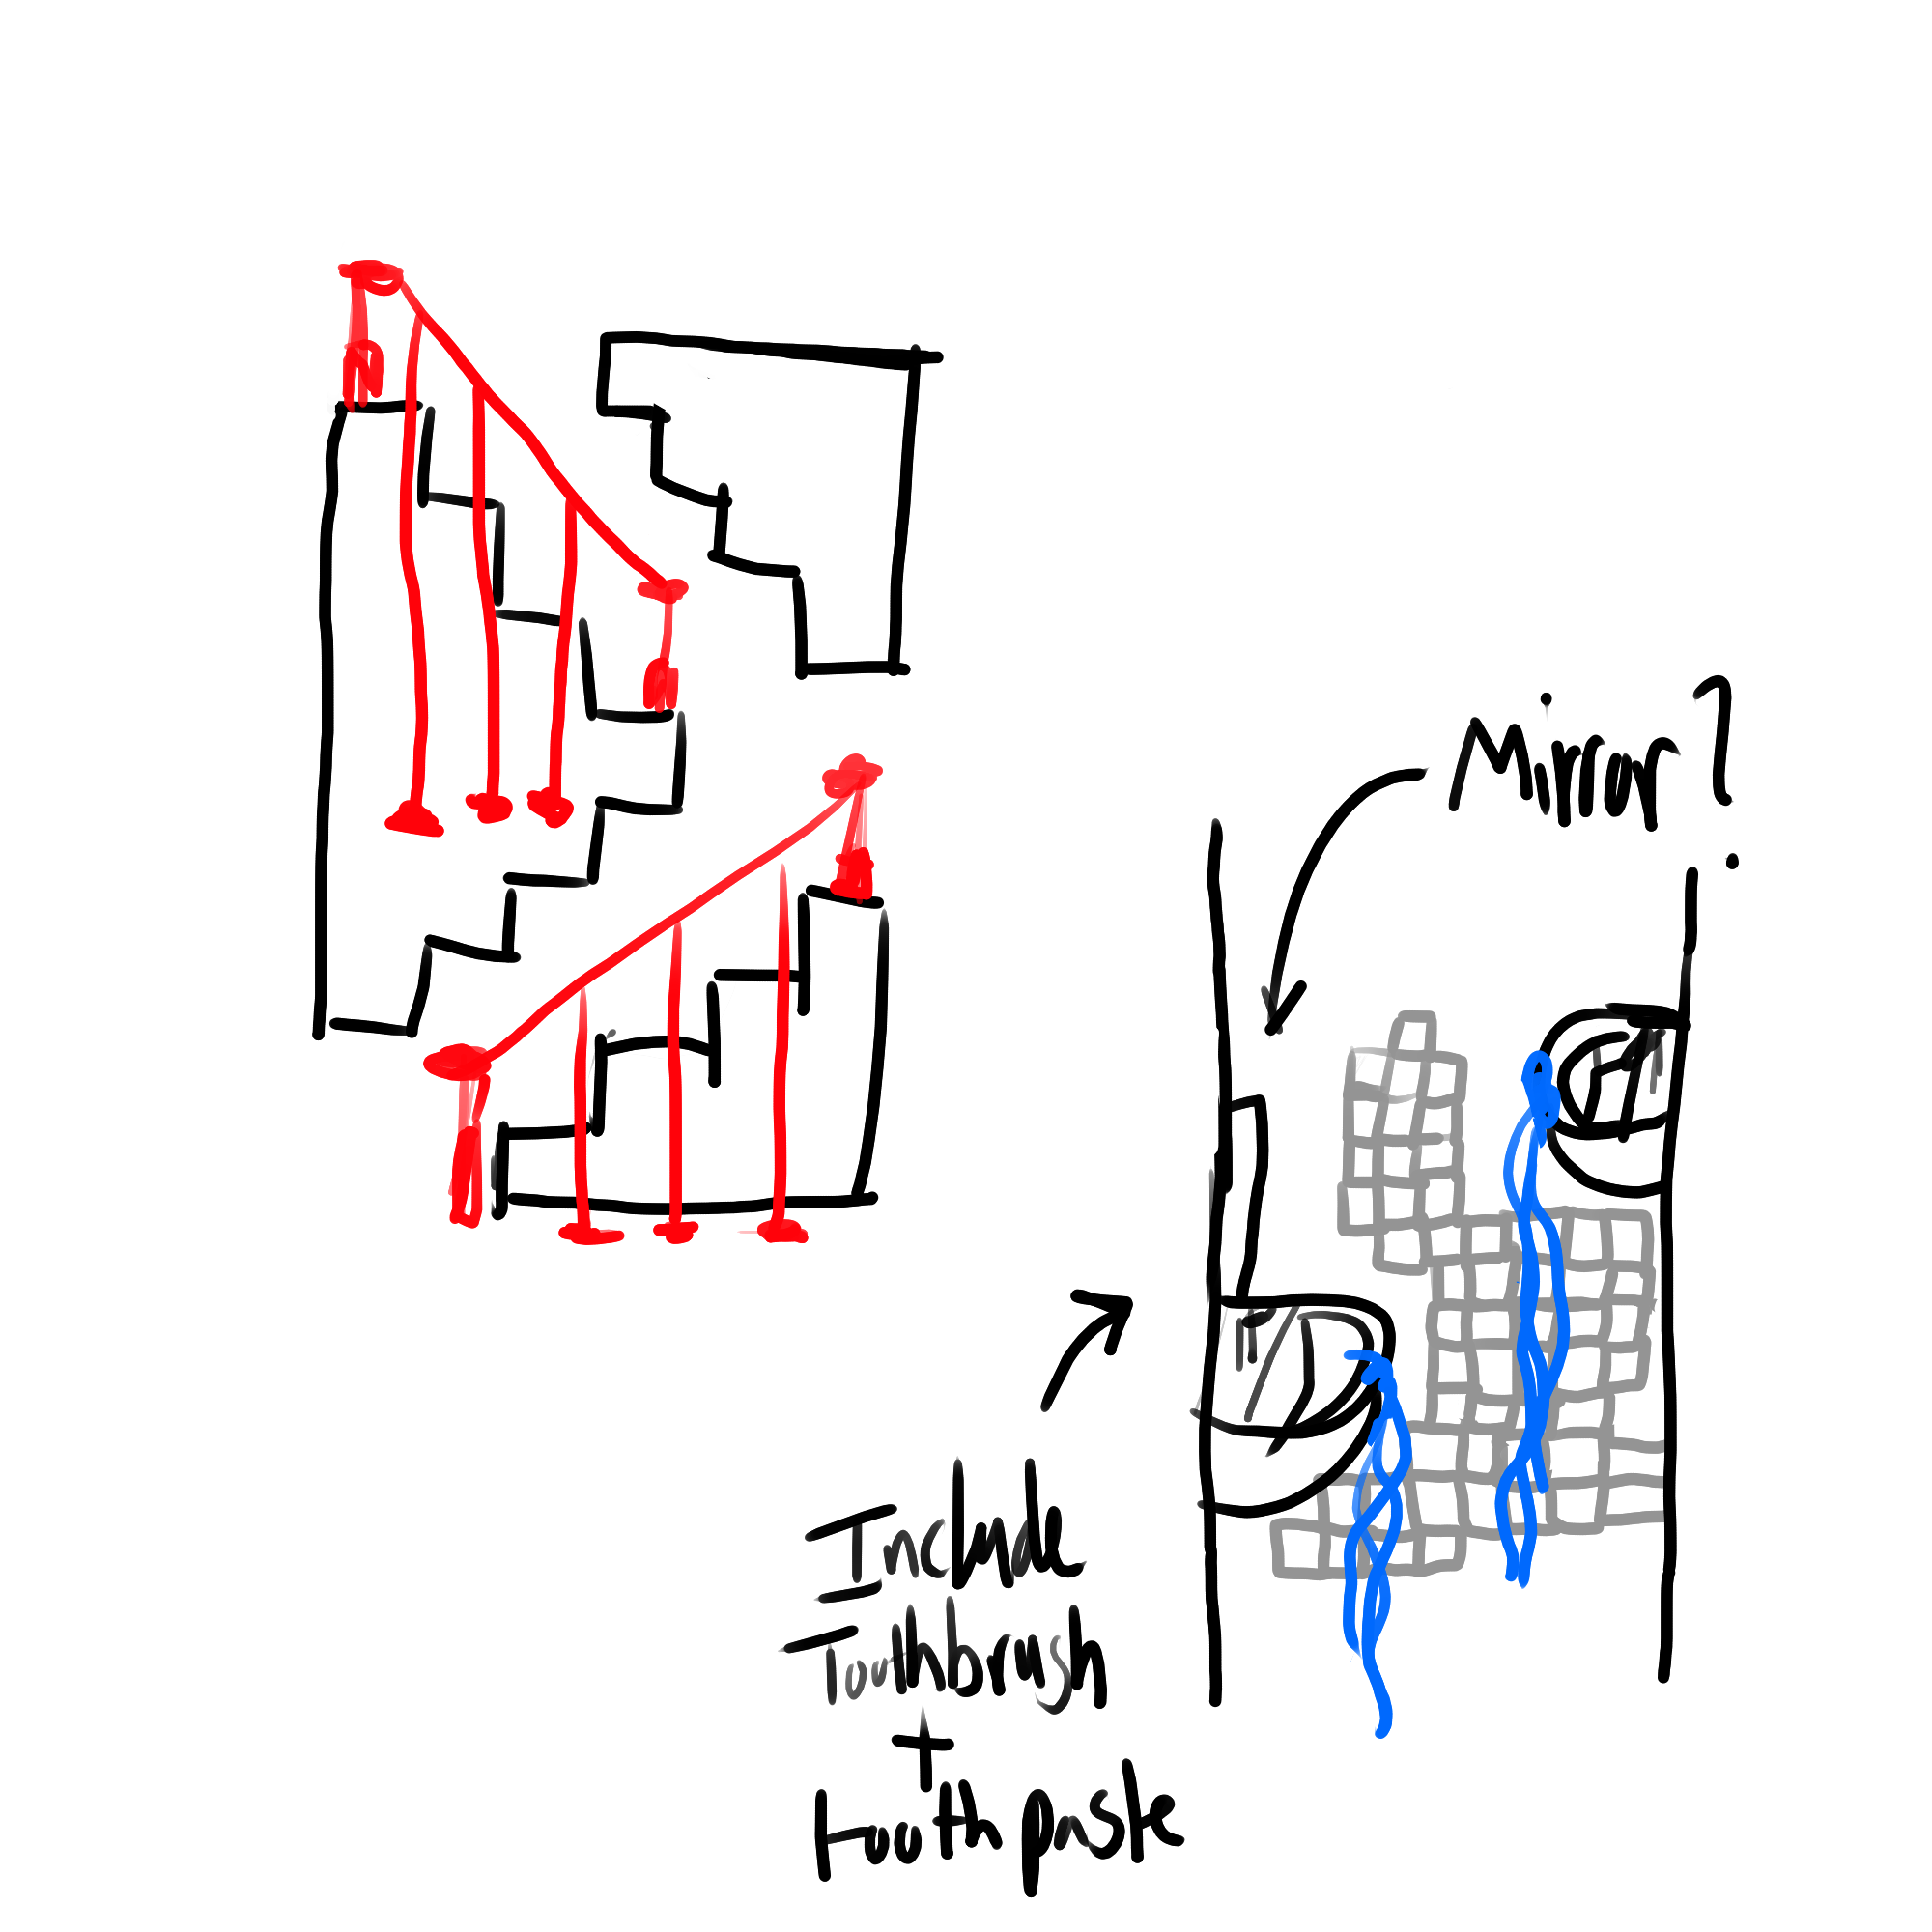 Mirror?
Include
Toothbrush
+
toothpaste